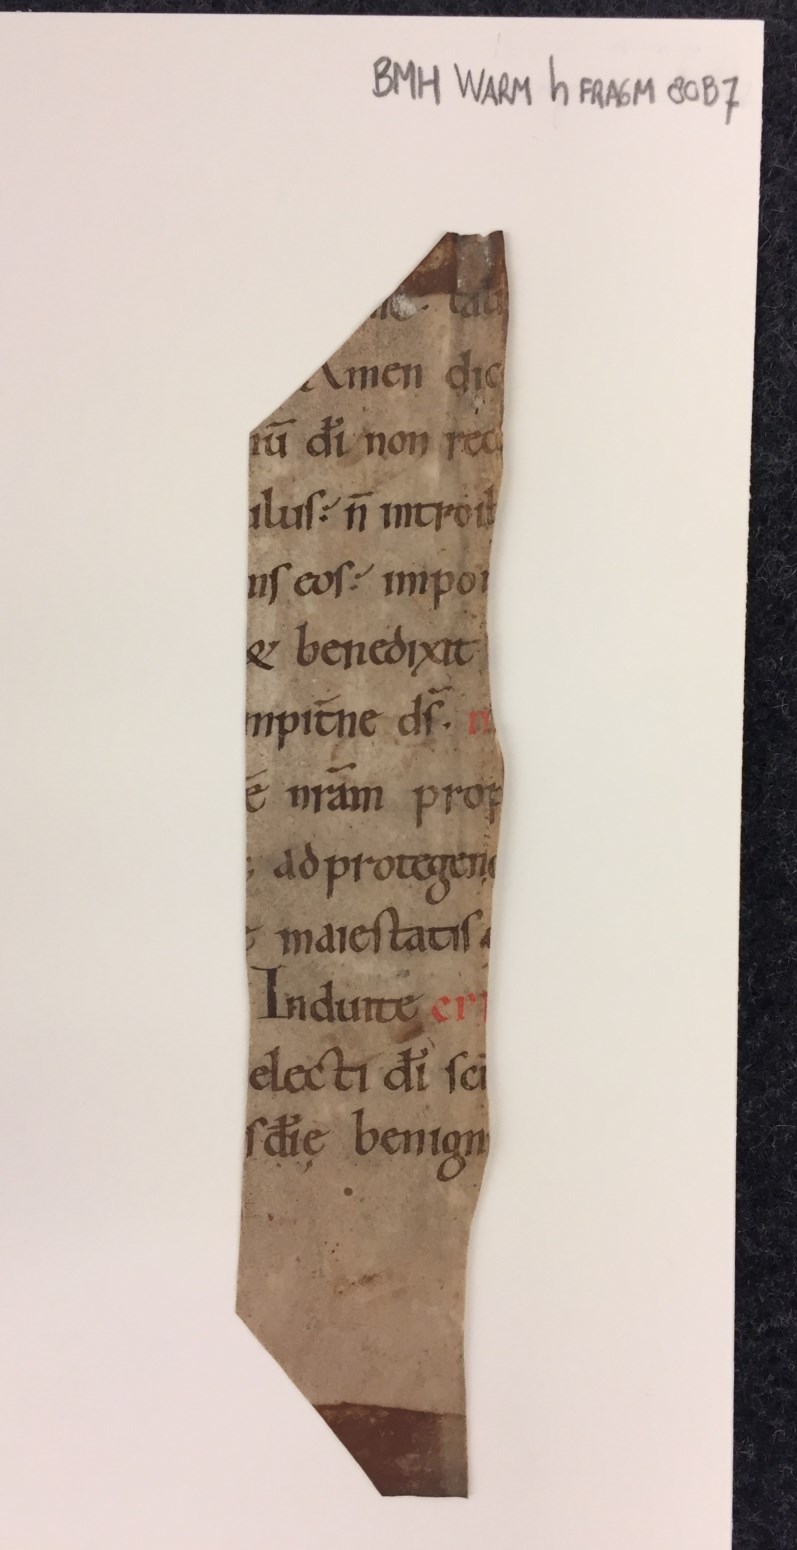 BMH WARM h FRAGM 80B7
tali
Amen dic
nū dī non rec
ulus: n̄ introib
ns eos: impon
& benedixit
mpit̄ne ds̄. 
ē nrām prop
ad protegen
maiestatis
Induite
electi dī sci
sdīe benign